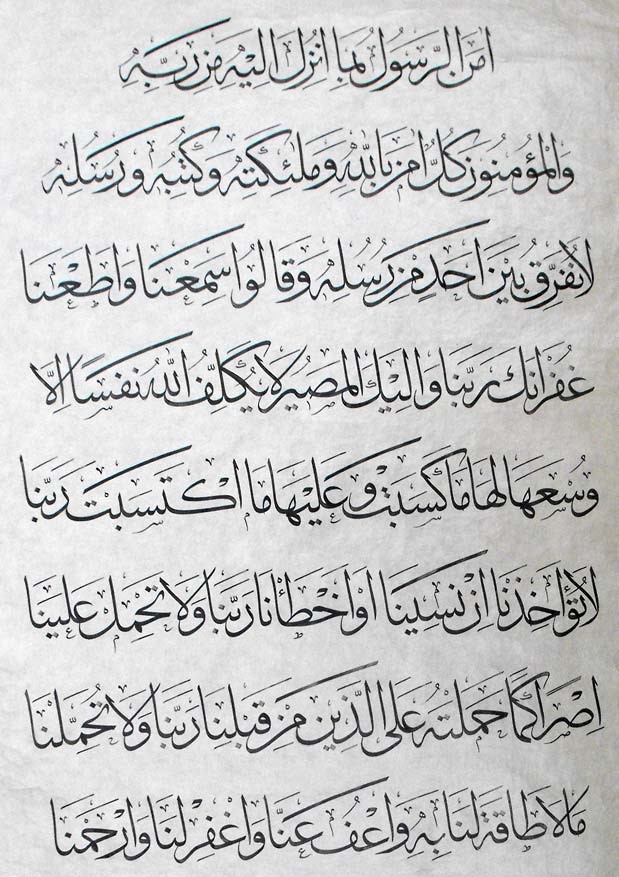 امن الرسول بما انزل اليه من ربه
والمؤمنون كل امن بالله وملئكته وكتبه ورسله
لا نفرق بين احد من رسله وقالوا سمعنا واطعنا
غفرانك ربنا واليك المصير لا يكلف الله نفسا الا
وسعها لها ما كسبت وعليها ما اكتسبت ربنا
لا تؤاخذنا ان نسينا او اخطأنا ربنا ولا تحمل علينا
اصرا كما حملته على الذين من قبلنا ربنا ولا تحملنا
ما لا طاقة لنا به واعف عنا واغفر لنا وارحمنا